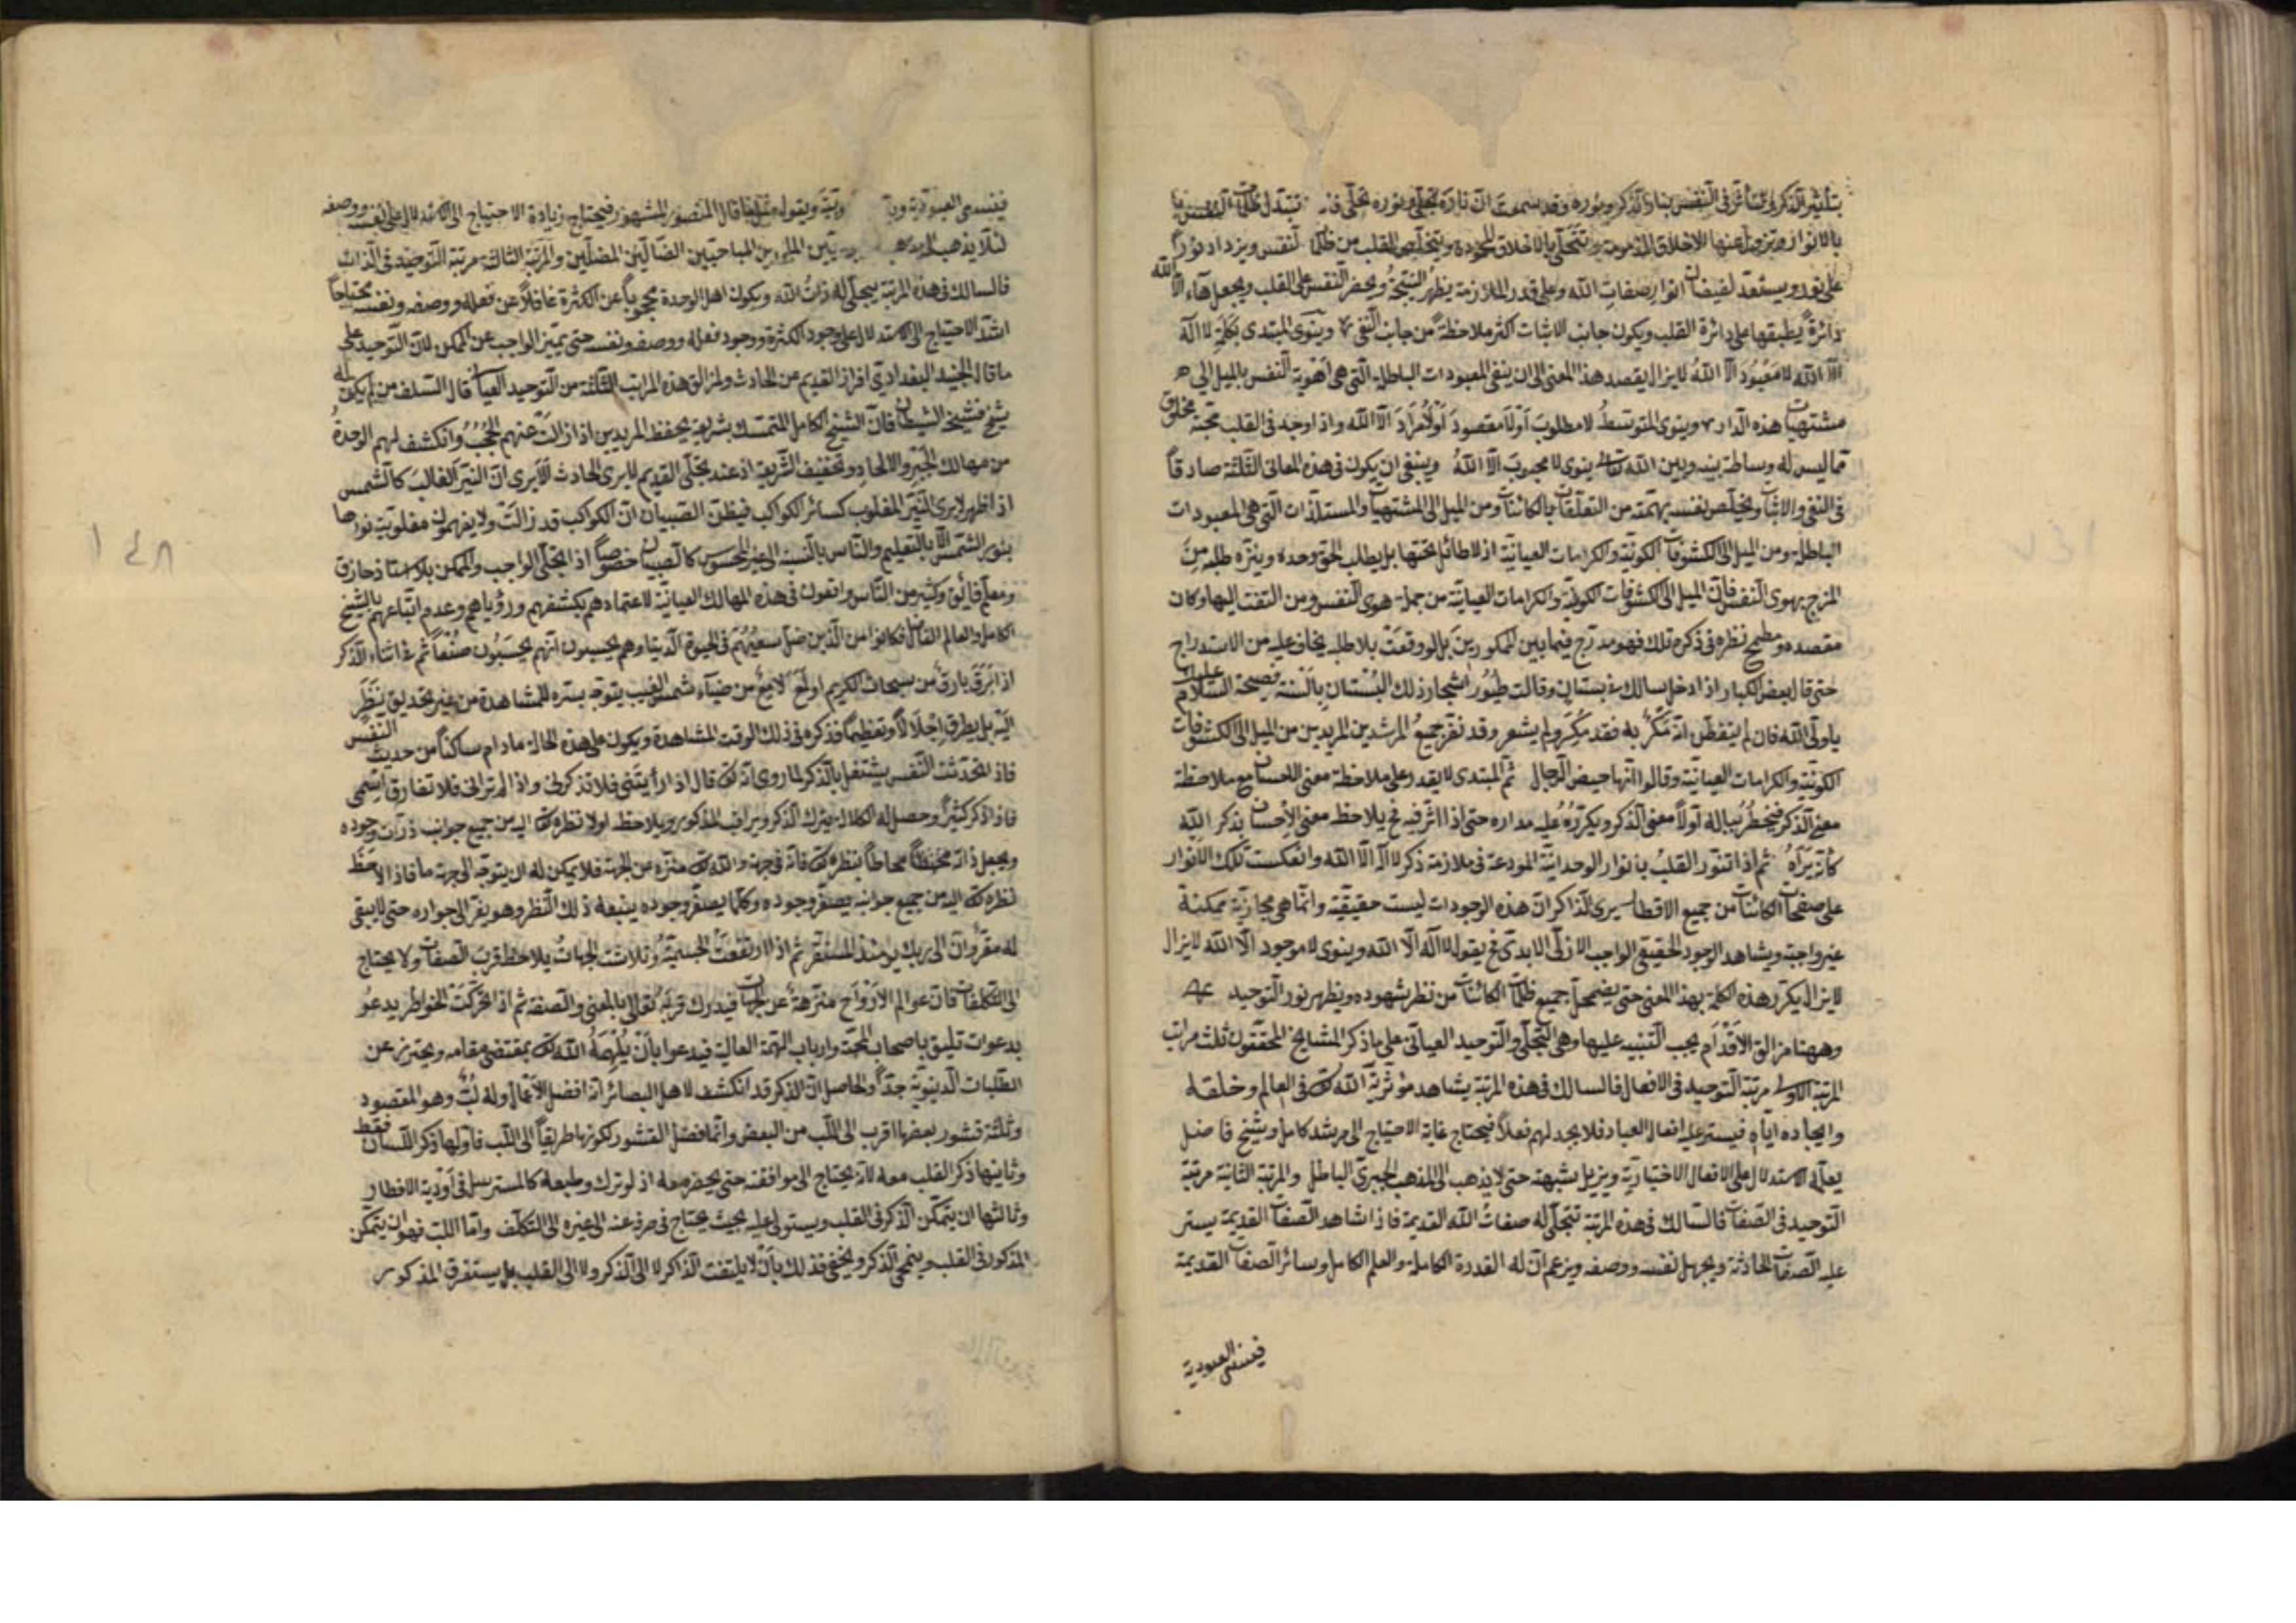 بتأثير الذكر في النفس بنار الذكر ونوره وقد سمعت ان ناره تجلى ونوره تحلى تبتدل ظلمات النفس
بالانوار وتزول عنها الاخلاق المذمومة وتتحلى بالاخلاق المحمودة ويتخلص القلب من ظلمات النفس ويزداد نوراً
على نور ويستعد لفيضان انوار صفات الله وعلى قدر الملازمة يظهر النتيجة ويحضر النفس على القلب ويجعل هاء الا الله
دائرة يطبقها على دائرة القلب ويكون جانب الاثبات اكثر ملاحظة من جانب النفى وينوى المبتدى بكلمة لا اله
الا الله لا معبود الا الله لا يزال يقصد هذا المعنى الى ان ينفى المعبودات الباطلة التى هى اهوية النفس بالميل الى
مشتهيات هذه الدار وينوى المتوسط لا مطلوب اولا مقصود اولا مراد الا الله واذا وجد في القلب محبة مخلوق
مما ليس له وساطة بينه وبين الله تعالى ينوى لا محبوب الا الله وينبغى ان يكون في هذه المعانى الثلثة صادقاً
في النفى والاثبات ويخلص نفسه بهمته من التعلقات بالكائنات ومن الميل الى المشتهيات والمستلذات التى هى المعبودات
الباطلة ومن الميل الى الكشوفات الكونية والكرامات العيانية اذ لا طائل تحتها بل يطلب الحق وحده وينزه طلبه من
المزج بهوى النفس فان الميل الى الكشوفات الكونية والكرامات العيانية من جملة هوى النفس ومن التفت اليها وكان
مقصده ومطمح نظره في ذكره تلك فهو مدرج فيما بين الممكورين بل لو وقعت بلا طلبه يخاف عليه من الاستدراج
حتى قال بعض الكبار اذا دخل سالك في بستان وقالت طيور اشجار ذلك البستان بالسنة فصيحة السلام عليك
يا ولى الله فان لم يتفطن انه مكر به فقد مكر ولم يشعر وقد نفر جميع المرشدين المريدين من الميل الى الكشوفات
الكونية والكرامات العيانية وقالوا انها حيض الرجال ثم المبتدى لا يقدر على ملاحظة معنى الاحسان مع ملاحظة
معنى الذكر فيخطر بباله اولاً معنى الذكر ويكرره عليه مداره حتى اذا اثر فيه فح يلاحظ معنى الاحسان بذكر الله
كأنه يراه ثم اذا تنور القلب بانوار الوحدانية المودعة في ملازمة ذكر لا اله الا الله وانعكست تلك الانوار
على صفحات الكائنات من جميع الاقطار يرى الذاكر ان هذه الوجودات ليست حقيقية وانما هى مجازية ممكنة
غير واجبة ويشاهد الوجود الحقيقى الواجب الازلى الابدى فح يقول لا اله الا الله وينوى لا موجود الا الله لا يزال
لا يزال يكرر هذه الكلمة بهذا المعنى حتى يضمحل جميع ظلمات الكائنات من نظر شهوده ويظهر نور التوحيد
وههنا مزالق الاقدام يجب التنبيه عليها وهى التجلى والتوحيد العيانى على ما ذكر المشايخ المحققون ثلث مراتب
المرتبة الاولى مرتبة التوحيد في الافعال فالسالك في هذه المرتبة يشاهد مؤثرية الله تعالى في العالم وخلقه
وايجاده اياه فيستر عليه افعال العباد فلا يجد لهم فعلاً فيحتاج غاية الاحتياج الى مرشد كامل وشيخ فاضل
يعلم الاستدلال على الافعال الاختيارية ويزيل شبهته حتى لا يذهب الى المذهب الجبرى الباطل والمرتبة الثانية مرتبة
التوحيد في الصفات فالسالك في هذه المرتبة تتجلى له صفات الله القديمة فاذا شاهد الصفات القديمة يستر
عليه الصفات الحادثة ويجهل نفسه ووصفه ويزعم ان له القدرة الكاملة والعلم الكامل وسائر الصفات القديمة
فينسى العبودية
١٤٧
فينسى العبودية ويقول مثل ما قال المنصور المشهور فيحتاج زيادة الاحتياج الى الاستدلال على نفسه ووصفه
لئلا يذهب المباحيين الضالين المضلين والمرتبة الثالثة مرتبة التوحيد في الذات
فالسالك في هذه المرتبة يتجلى له ذات الله ويكون اهل الوحدة محجوباً عن الكثرة غافلاً عن فعله ووصفه ونفسه محتاجاً
اشد الاحتياج الى الاستدلال على وجود الكثرة ووجود فعله ووصفه ونفسه حتى يتميز الواجب عن الممكن لان التوحيد على
ما قال الجنيد البغدادى افراز القديم عن الحادث ولمزالق هذه المراتب الثلثة من التوحيد العيانى قال السلف من لم يكن له
شيخ فشيخه الشيطان فان الشيخ الكامل المتمسك بشريعة يحفظ المريدين اذا زالت عنهم الحجب وانكشف لهم الوحدة
من مهالك الجبر والالحاد وتخفيف الشريعة اذ عند تجلى القديم لا يرى الحادث الا يرى ان النير الغالب كالشمس
اذا ظهر لا يرى النير المغلوب كسائر الكواكب فيظن الصبيان ان الكواكب قد زالت ولا يفهمون مغلوبية نورها
بنور الشمس الا بالتعليم والناس بالنسبة الى غير المحسوس كالصبيان خصوصاً اذا تجلى الواجب والممكن بلا استاذ حاذق
ومعلم فائق وكثير من الناس واقعون في هذه المهالك العيانية لاعتمادهم بكشفهم ورؤياهم وعدم اتباعهم بالشيخ
الكامل والعالم الفاضل فكانوا من الذين ضل سعيهم في الحيوة الدنيا وهم يحسبون انهم يحسنون صنعاً ثم في اثناء الذكر
اذا برق بارق من سبحات الكريم او لمع لامع من ضياء شمس الغيب يتوجه بسره للمشاهدة من غير تحديق ينظر
اليه بل يطرق اجلالاً وتعظيماً فذكره في ذلك الوقت المشاهدة ويكون على هذه الحالة مادام ساكناً من حديث النفس
فاذا تحدثت النفس يشتغل بالذكر لما روى انه تعالى قال اذا رأيتنى فلا تذكرنى واذا لم ترانى فلا تفارق اسمى
فاذا ذكر كثيراً وحصل له الكلال يترك الذكر ويراقب المذكور ويلاحظ اولا نظره تعالى اليه من جميع جوانب ذرات وجوده
ويجعل ذاته محيطاً محاطاً بنظره تعالى فانه في جهة والله تعالى منزه من الجهة فلا يمكن له ان يتوجه الى جهة ما فاذا لاحظ
نظره تعالى اليه من جميع جوانبه يصفر وجوده وكلما يصفر وجوده يتبعه ذلك النظر وهو يفر الى جواره حتى لا يبقى
له مقر وان الى ربك يومئذ المستقر ثم اذا ارتفعت الجسمية وتلاشت الجهات يلاحظ قرب الصفات ولا يحتاج
الى التكلفات فان عوالم الارواح منزهة عن الجهات فيدرك قربه تعالى بالمعنى والصفة ثم اذا تحركت الخواطر يدعو
بدعوات تليق باصحاب المحبة وارباب الهمة العالية فيدعوا بان يلهمه الله تعالى بمقتضى مقامه ويحترز عن
الطلبات الدنيوية جداً والحاصل ان الذكر قد انكشف لاهل البصائر انه افضل الاعمال وله لب وهو المقصود
وثلثة قشور بعضها اقرب الى اللب من البعض وانما فضل القشور لكونها طريقاً الى اللب فاولها ذكر اللسان فقط
وثانيها ذكر القلب معه لانه يحتاج الى موافقته حتى يحضر معه اذ لو ترك وطبعه كالمسترسل في اودية الافطار
وثالثها ان يتمكن الذكر في القلب ويستولى عليه بحيث يحتاج في صرفه عنه الى غيره الى التكلف واما اللب فهو ان يتمكن
المذكور في القلب وينمحى الذكر ويخفى فذلك بان لا يلتفت الذاكر لا الى الذكر ولا الى القلب بل يستغرق المذكور
١٤٨